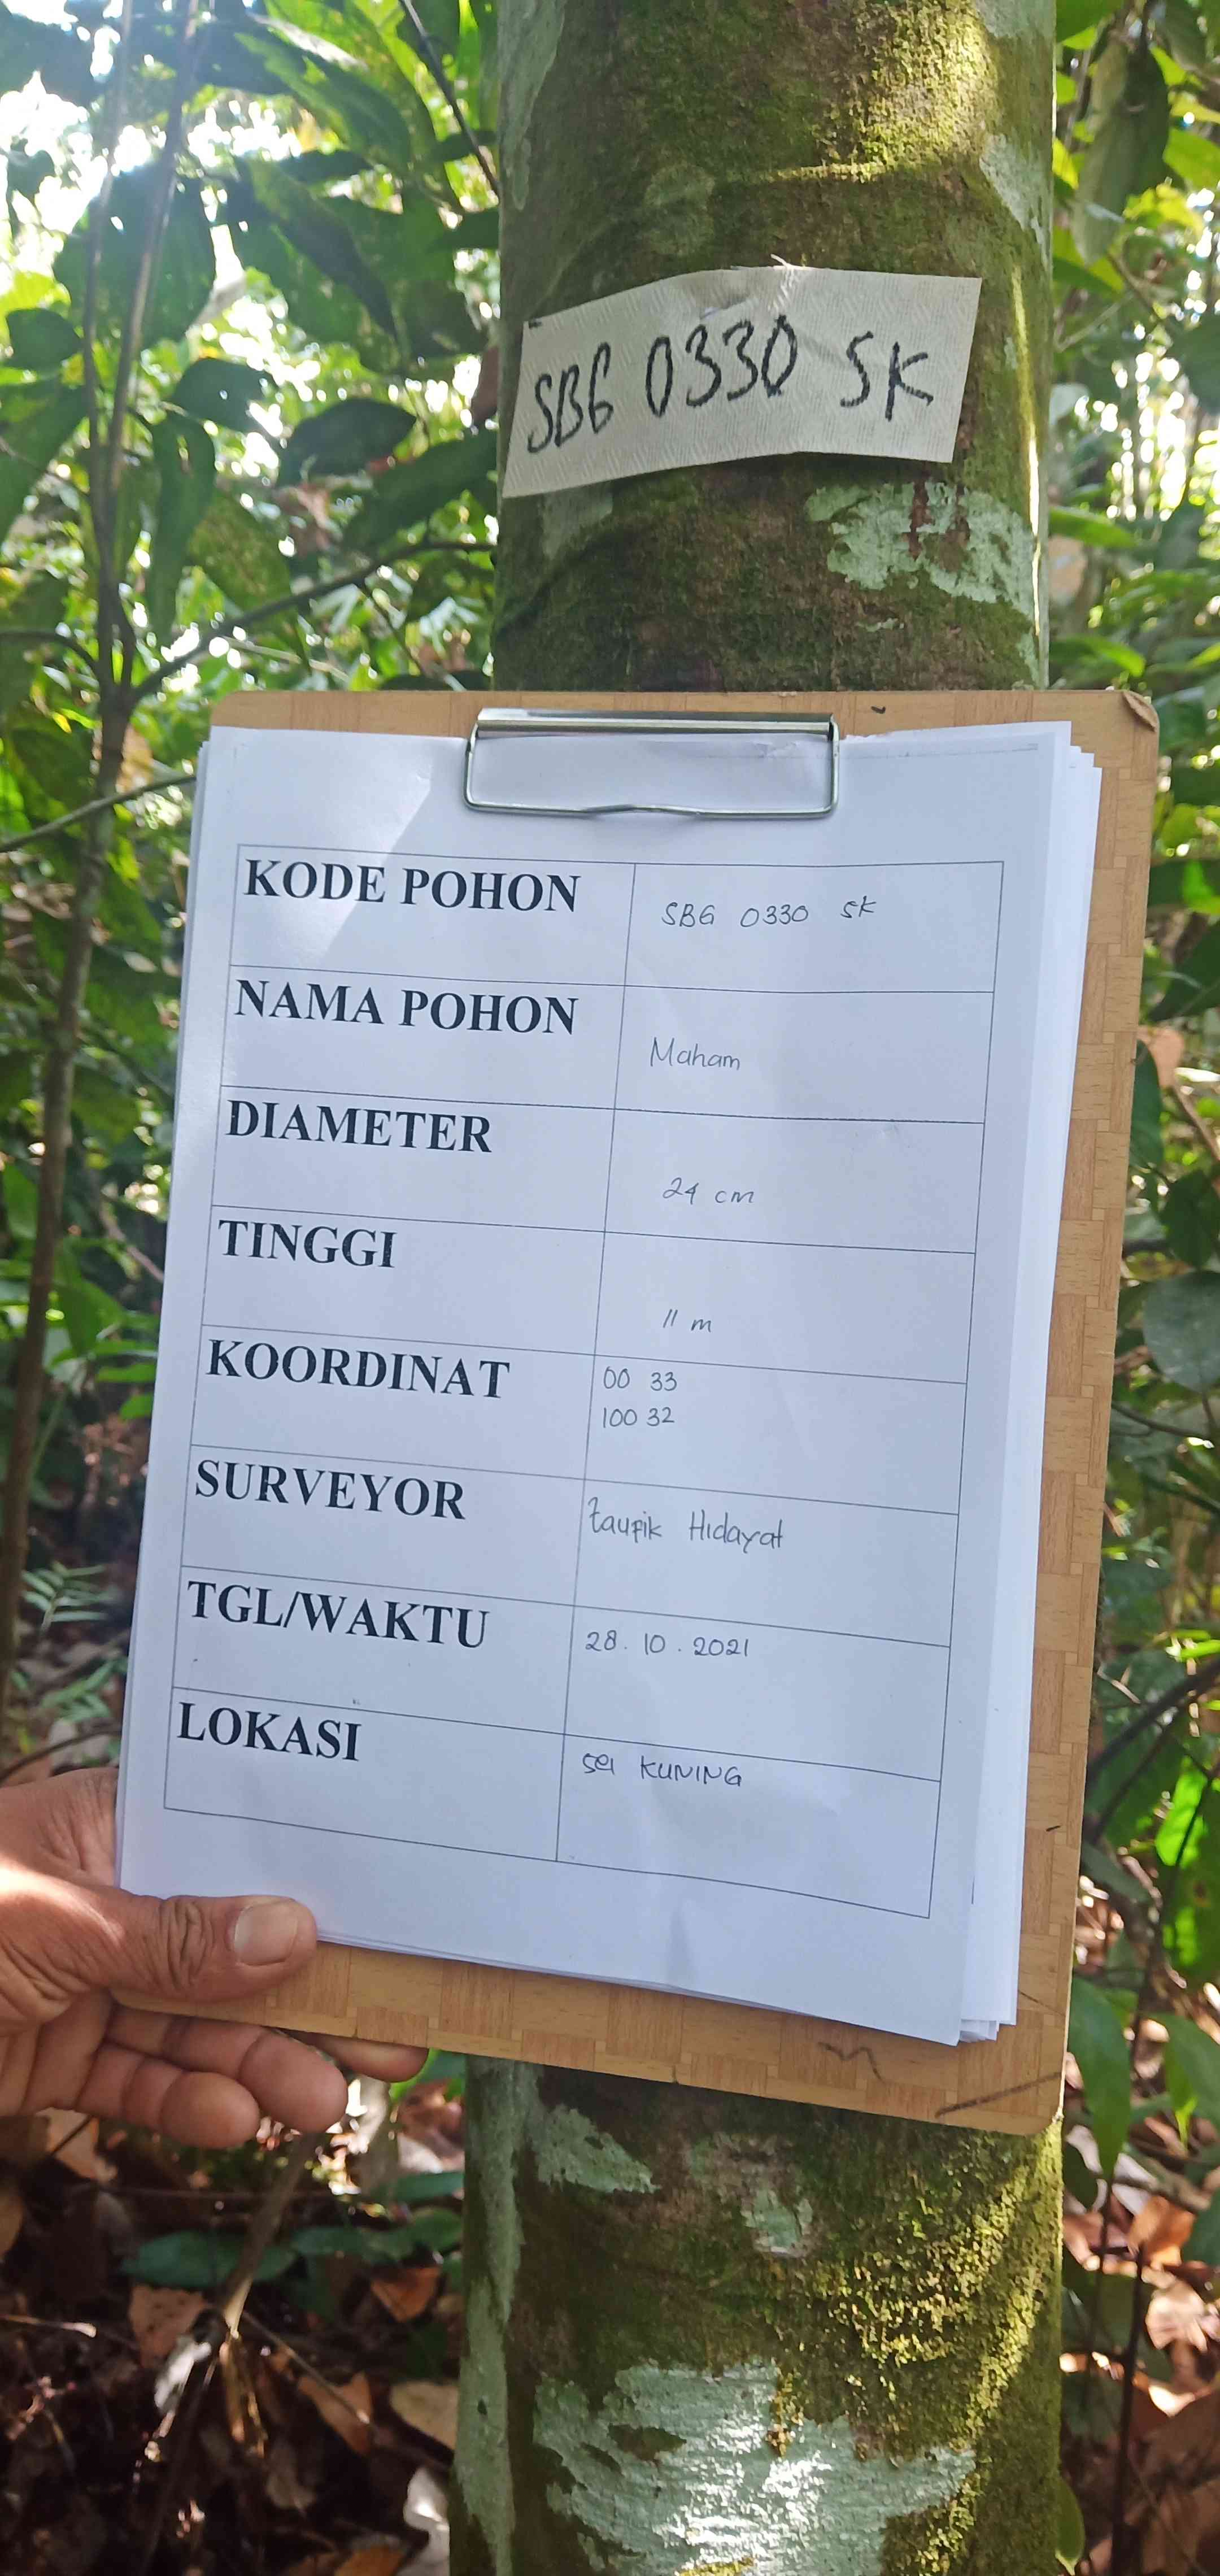 SBG 0330 SK
KODE POHON SBG 0330 SK
NAMA POHON Maham
DIAMETER 24 cm
TINGGI 11 m
KOORDINAT 00 33
100 32
SURVEYOR taufik Hidayat
TGL/WAKTU 28.10.2021
LOKASI sei KUNING